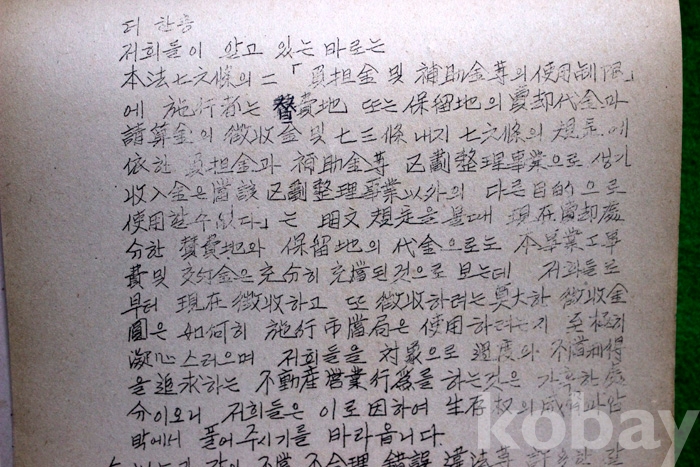 더 한층
저희들이 알고 있는 바로는
本法七六條의二「負担金 및 補助金等의 使用制限」
에 施行者는 替費地 또는 保留地의 賣却代金과
請算金의 徵收金 및 七三條 내지 七六條의 規定에
依한 負担金과 補助金等 区劃整理事業으로 생긴
收入金은 當該 区劃整理事業 以外의 다른 目的으로
使用할 수 없다」는 明文 規定을 볼때 現在 賣却處
分한 替費地와 保留地의 代金으로도 本事業工事
費 및 交付金은 充分히 充當된 것으로 보는데 저희들로
부터 現在 徵收하고 또 徵收하려는 莫大한 徵收金
圓은 如何히 施行市當局은 使用하려는지 至極히
凝心스러우며 저희들을 対象으로 過度의 不當利得
을 追求하는 不動産営業行為를 하는것은 가혹한 處
分이오니 저희들은 이로 因하여 生存权의 威脅과
박에서 풀어 주시기를 바라옵니다.
不當 不合理 錯誤 違法等
kobay